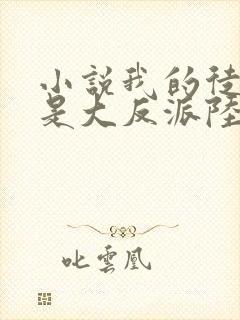 小説我的徒
是大反派陸
叱雲凰